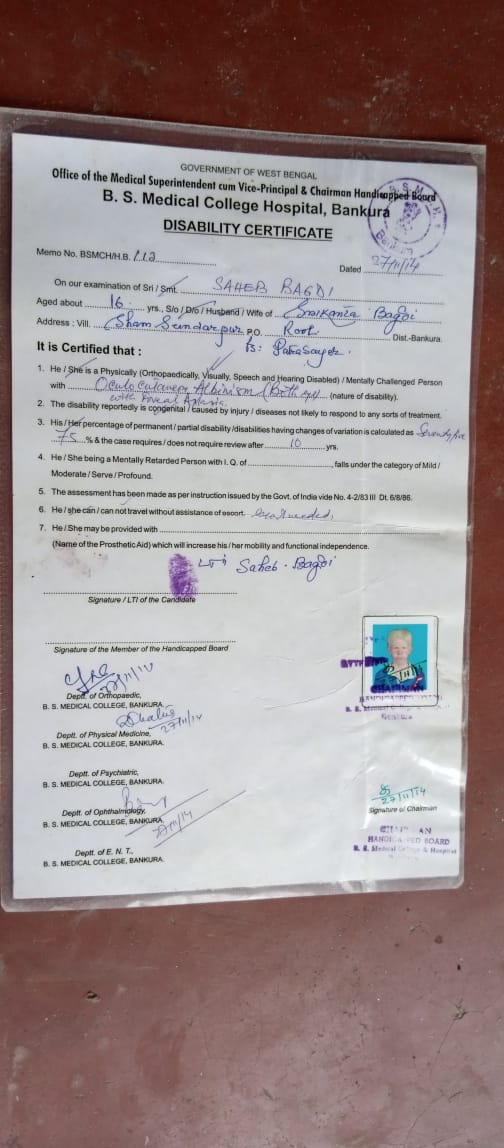 GOVERNMENT OF WEST BENGAL
Office of the Medical Superintendent cum Vice-Principal & Chairman Handicapped Board
B. S. Medical College Hospital, Bankura
DISABILITY CERTIFICATE
Memo No. BSMCH/H.B. 112
Dated 27/11/14
On our examination of Sri / Smt. SAHEB BAGDI
Aged about 16 yrs., S/o / D/o / Husband / Wife of Bagdi
Address : Vill. Sham Sundarpur P.O. Root Dist.-Bankura.
PS: Patrasayer.
It is Certified that :
1. He / She is a Physically (Orthopaedically, Visually, Speech and Hearing Disabled) / Mentally Challenged Person
with Oculo Cutaneous Albinism (Both eye) (nature of disability).
with Foveal
2. The disability reportedly is congenital / caused by injury / diseases not likely to respond to any sorts of treatment.
3. His / Her percentage of permanent / partial disability/disabilities having changes of variation is calculated as Seventy five
75 % & the case requires / does not require review after 10 yrs.
4. He / She being a Mentally Retarded Person with I. Q. of , falls under the category of Mild /
Moderate / Serve / Profound.
5. The assessment has been made as per instruction issued by the Govt. of India vide No. 4-2/83 III Dt. 6/8/86.
6. He / she can / can not travel without assistance of escort.
7. He / She may be provided with
(Name of the Prosthetic Aid) which will increase his / her mobility and functional independence.
LTI Saheb Bagdi
Signature / LTI of the Candidate
Signature of the Member of the Handicapped Board
27/11/14
Deptt. of Orthopaedic,
B. S. MEDICAL COLLEGE, BANKURA.
27/11/14
Deptt. of Physical Medicine,
B. S. MEDICAL COLLEGE, BANKURA.
Deptt. of Psychiatric,
B. S. MEDICAL COLLEGE, BANKURA.
Deptt. of Ophthalmology,
B. S. MEDICAL COLLEGE, BANKURA.
27/11/14
Deptt. of E. N. T.,
B. S. MEDICAL COLLEGE, BANKURA.
CHAIRMAN
27/11/14
Signature of Chairman
HANDICAPPED BOARD
B. S. Medical College & Hospital